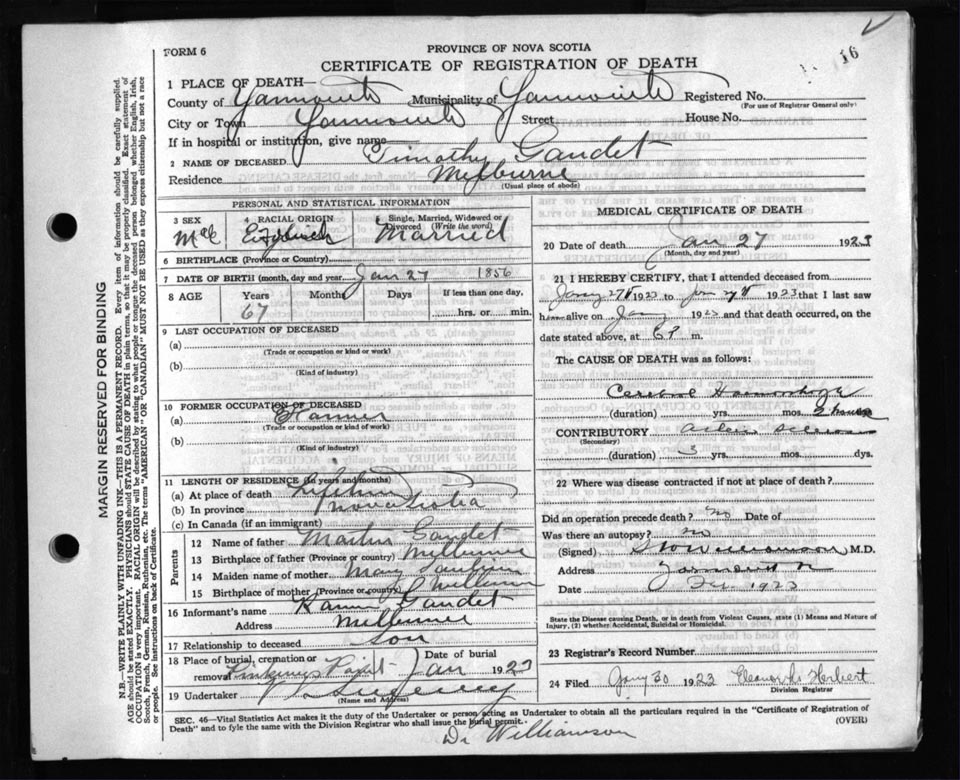 16
FORM 6
PROVINCE OF NOVA SCOTIA
CERTIFICATE OF REGISTRATION OF DEATH
1 PLACE OF DEATH—
County of Yarmouth Municipality of Yarmouth Registered No.
(For use of Registrar General only)
City or Town Yarmouth Street House No.
If in hospital or institution, give name
2 NAME OF DECEASED Timothy Gaudet
Residence Melburne
(Usual place of abode)
PERSONAL AND STATISTICAL INFORMATION
3 SEX 4 RACIAL ORIGIN 5 Single, Married, Widowed or Divorced (Write the word)
Male Married
6 BIRTHPLACE (Province or Country)
7 DATE OF BIRTH (month, day and year) Jan 27 1856
8 AGE Years Months Days If less than one day,
67 hrs. or min.
9 LAST OCCUPATION OF DECEASED
(a)
(Trade or occupation or kind or work)
(b)
(Kind of industry)
10 FORMER OCCUPATION OF DECEASED
(a) Farmer
(Trade or occupation or kind of work)
(b)
(Kind of industry)
11 LENGTH OF RESIDENCE (In years and months)
(a) At place of death Lifetime
(b) In province Nova Scotia
(c) In Canada (if an immigrant)
Parents
12 Name of father Gaudet
13 Birthplace of father (Province or country) Melburne
14 Maiden name of mother Mary
15 Birthplace of mother (Province or country)
16 Informant's name Gaudet
Address Melburne
17 Relationship to deceased Son
18 Place of burial, cremation or removal Date of burial
Point Jan 1923
19 Undertaker
(Name and Address)
MEDICAL CERTIFICATE OF DEATH
20 Date of death Jan 27 1923
(Month, day and year)
21 I HEREBY CERTIFY, that I attended deceased from
1923 to 1923 that I last saw
h alive on 192 and that death occurred, on the
date stated above, at 6 P m.
The CAUSE OF DEATH was as follows:
Cerebral Haemorrhage
(duration) yrs. mos. 2 hours
CONTRIBUTORY
(Secondary)
(duration) 3 yrs. mos. dys.
22 Where was disease contracted if not at place of death?
Did an operation precede death? no Date of
Was there an autopsy? no
(Signed) Williamson, M.D.
Address Yarmouth
Date 1923
State the Disease Causing Death, or in death from Violent Causes, state (1) Means and Nature of
Injury, (2) whether Accidental, Suicidal or Homicidal.
23 Registrar's Record Number
24 Filed Jany 30 1923 Herbert
Division Registrar
SEC. 46—Vital Statistics Act makes it the duty of the Undertaker or person acting as Undertaker to obtain all the particulars required in the "Certificate of Registration of
Death" and to fyle the same with the Division Registrar who shall issue the burial permit. (OVER)
Dr Williamson
MARGIN RESERVED FOR BINDING
N.B.—WRITE PLAINLY WITH UNFADING INK—THIS IS A PERMANENT RECORD. Every item of information should be carefully supplied.
AGE should be stated EXACTLY. PHYSICIANS should STATE CAUSE OF DEATH in plain terms, so that it may be properly classified. Exact statement of
OCCUPATION is very important. RACIAL ORIGIN will be described by stating to what people or tongue the deceased person belonged whether English, Irish,
Scotch, French, German, Russian, Ruthenian, etc. The terms "AMERICAN" OR "CANADIAN" MUST NOT BE USED as they express citizenship but not a race
or people. See instructions on back of Certificate.